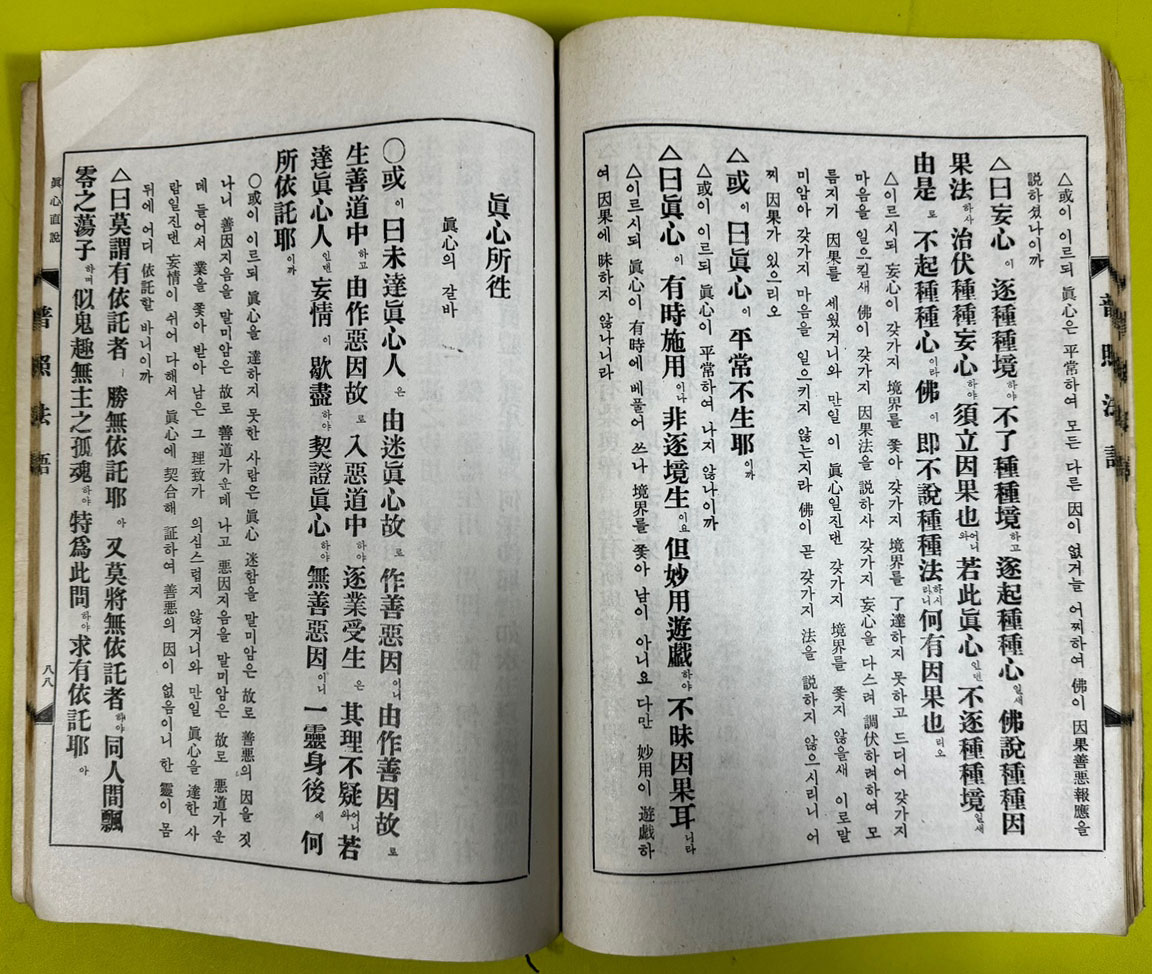 △或이 이르되 眞心은 平常하여 모든 다른 因이 없거늘 어찌하여 佛이 因果善悪報應을
説하셨나이까
△曰妄心이 逐種種境하야 不了種種境하고 遂起種種心일새 佛說種種因
果法하사 治伏種種妄心하야 須立因果也어니와 若此眞心인댄 不逐種種境일새
由是로 不起種種心이라 佛이 即不說種種法하시리니 何有因果也리오
△이르시되 妄心이 갖가지 境界를 쫓아 갖가지 境界를 了達하지 못하고 드디어 갖가지
마음을 일으킬새 佛이 갖가지 因果法을 説하사 갖가지 妄心을 다스려 調伏하려하여 모
름지기 因果를 세웠거니와 만일 이 眞心일진댄 갖가지 境界를 쫓지 않을새 이로말
미암아 갖가지 마음을 일으키지 않는지라 佛이 곧 갖가지 法을 説하지 않으시리니 어
찌 因果가 있으리오
△或이 曰眞心이 平常不生耶이까
△或이 이르되 眞心이 平常하여 나지 않나이까
△曰眞心이 有時施用이나 非逐境生이요 但妙用遊戱하야 不昧因果耳니라
△이르시되 眞心이 有時에 베풀어 쓰나 境界를 쫓아 남이 아니요 다만 妙用이 遊戱하
여 因果에 昧하지 않나니라
眞心所徃
眞心의 갈바
○或이 曰未達眞心人은 由迷眞心故로 作善惡因이니 由作善因故로
生善道中하고 由作惡因故로 入惡道中하야 逐業受生은 其理不疑어니와 若
達眞心人인댄 妄情이 歇盡하야 契證眞心하야 無善惡因이니 一靈身後에 何
所依託耶이까
○或이 이르되 眞心을 達하지 못한 사람은 眞心 迷함을 말미암은 故로 善悪의 因을 짓
나니 善因지음을 말미암은 故로 善道가운데 나고 悪因지음을 말미암은 故로 悪道가운
데 들어서 業을 쫓아 받아 남은 그 理致가 의심스럽지 않거니와 만일 眞心을 達한 사
람일진댄 妄情이 쉬어 다해서 眞心에 契合해 証하여 善悪의 因이 없음이니 한 靈이 몸
뒤에 어디 依託할 바니이까
△曰莫謂有依託者ㅣ 勝無依託耶아 又莫將無依託者하야 同人間飄
零之蕩子하며 似鬼趣無主之孤魂하야 特爲此問하야 求有依託耶아
眞心直說
普照法語
八八